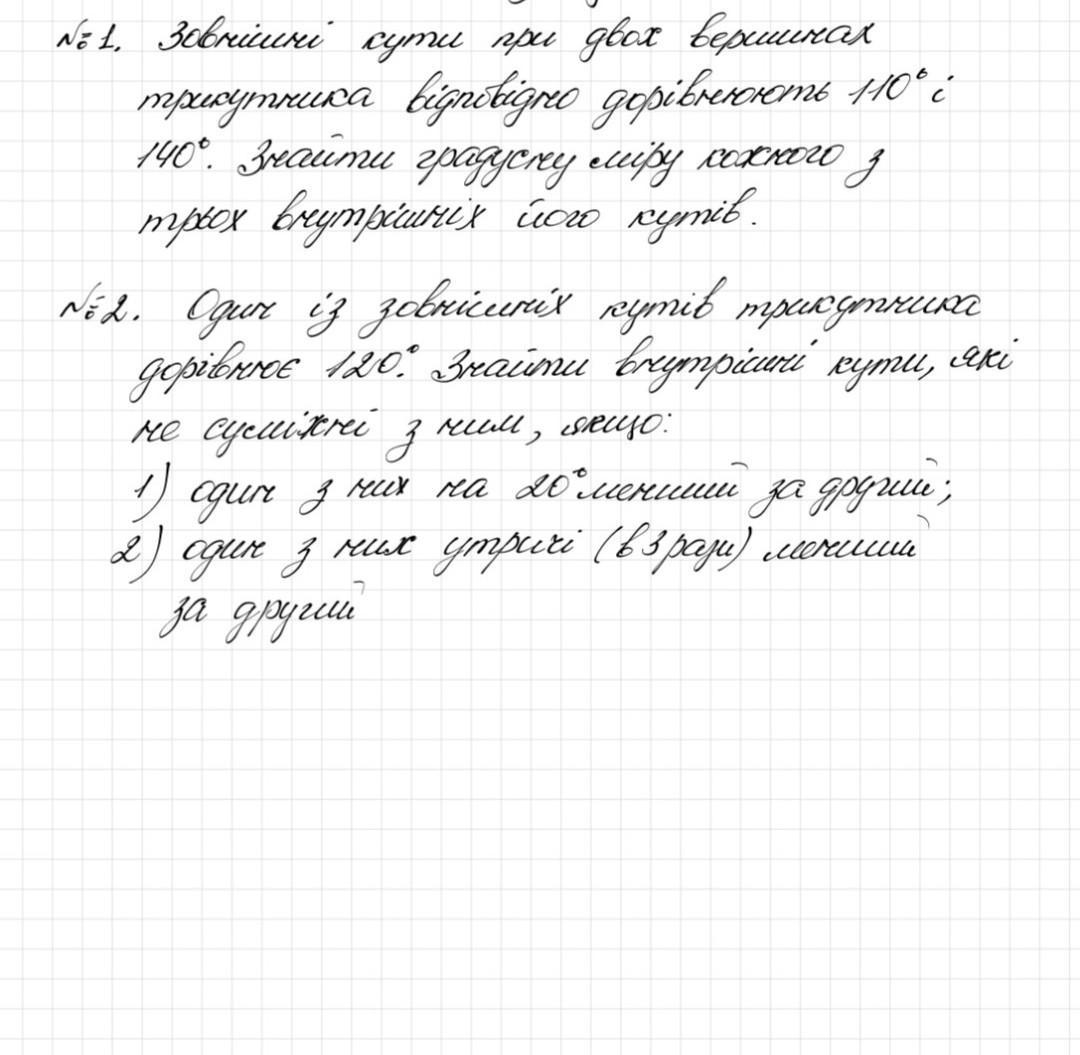 №1. Зовнішні кути при двох вершинах
трикутника відповідно дорівнюють 110° і
140°. Знайти градусну міру кожного з
трьох внутрішніх його кутів.
№2. Один із зовнішніх кутів трикутника
дорівнює 120°. Знайти внутрішні кути, які
не суміжні з ним, якщо:
1) один з них на 20° менший за другий;
2) один з них утричі (в 3 рази) менший
за другий